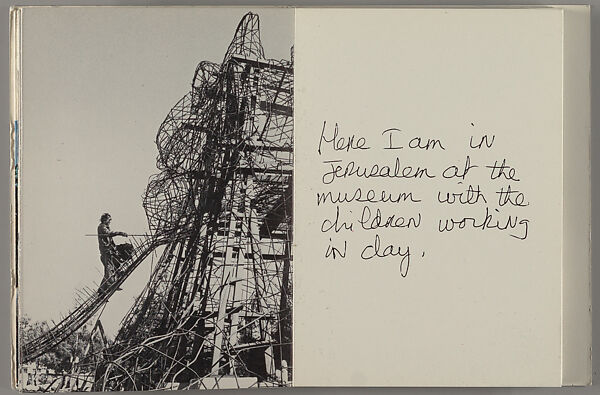 Here I am in
Jerusalem at the
museum with the
children working
in clay.